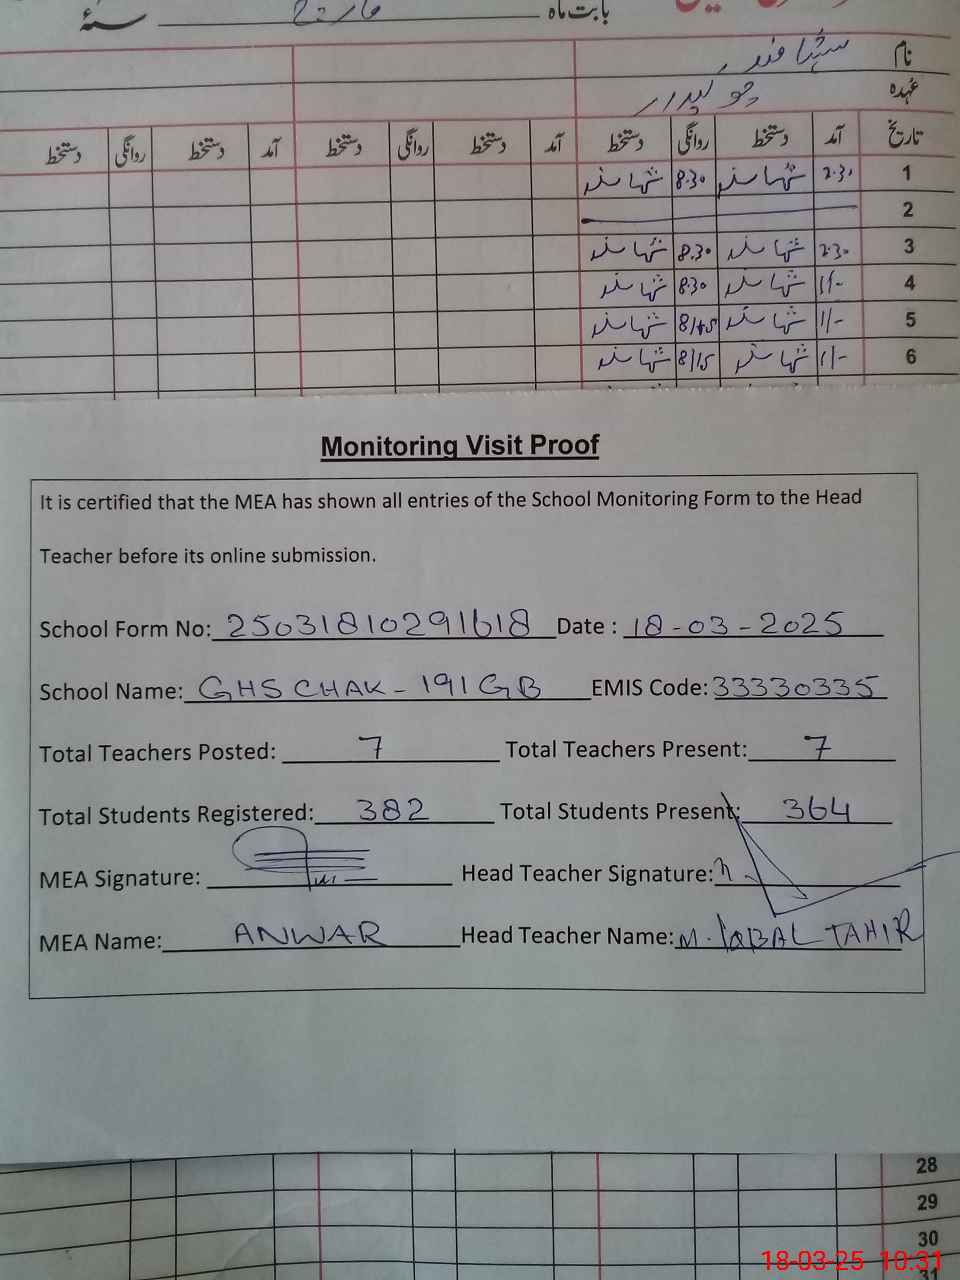 بابت ماہ مارچ سنہٴ
نام
عہدہ چوکیدار
تاریخ آمد دستخط روانگی دستخط آمد دستخط روانگی دستخط آمد دستخط روانگی دستخط
1 2.30 8.30
2
3 2.30 8.30
4 1/- 8.30
5 1/- 8/45
6 1/- 8/15
Monitoring Visit Proof
It is certified that the MEA has shown all entries of the School Monitoring Form to the Head
Teacher before its online submission.
School Form No: 25031810291618 Date : 18-03-2025
School Name: GHS CHAK - 191 GB EMIS Code: 33330335
Total Teachers Posted: 7 Total Teachers Present: 7
Total Students Registered: 382 Total Students Present: 364
MEA Signature: Head Teacher Signature:
MEA Name: ANWAR Head Teacher Name: M. IQBAL TAHIR
28
29
30
31
18-03-25 10:31